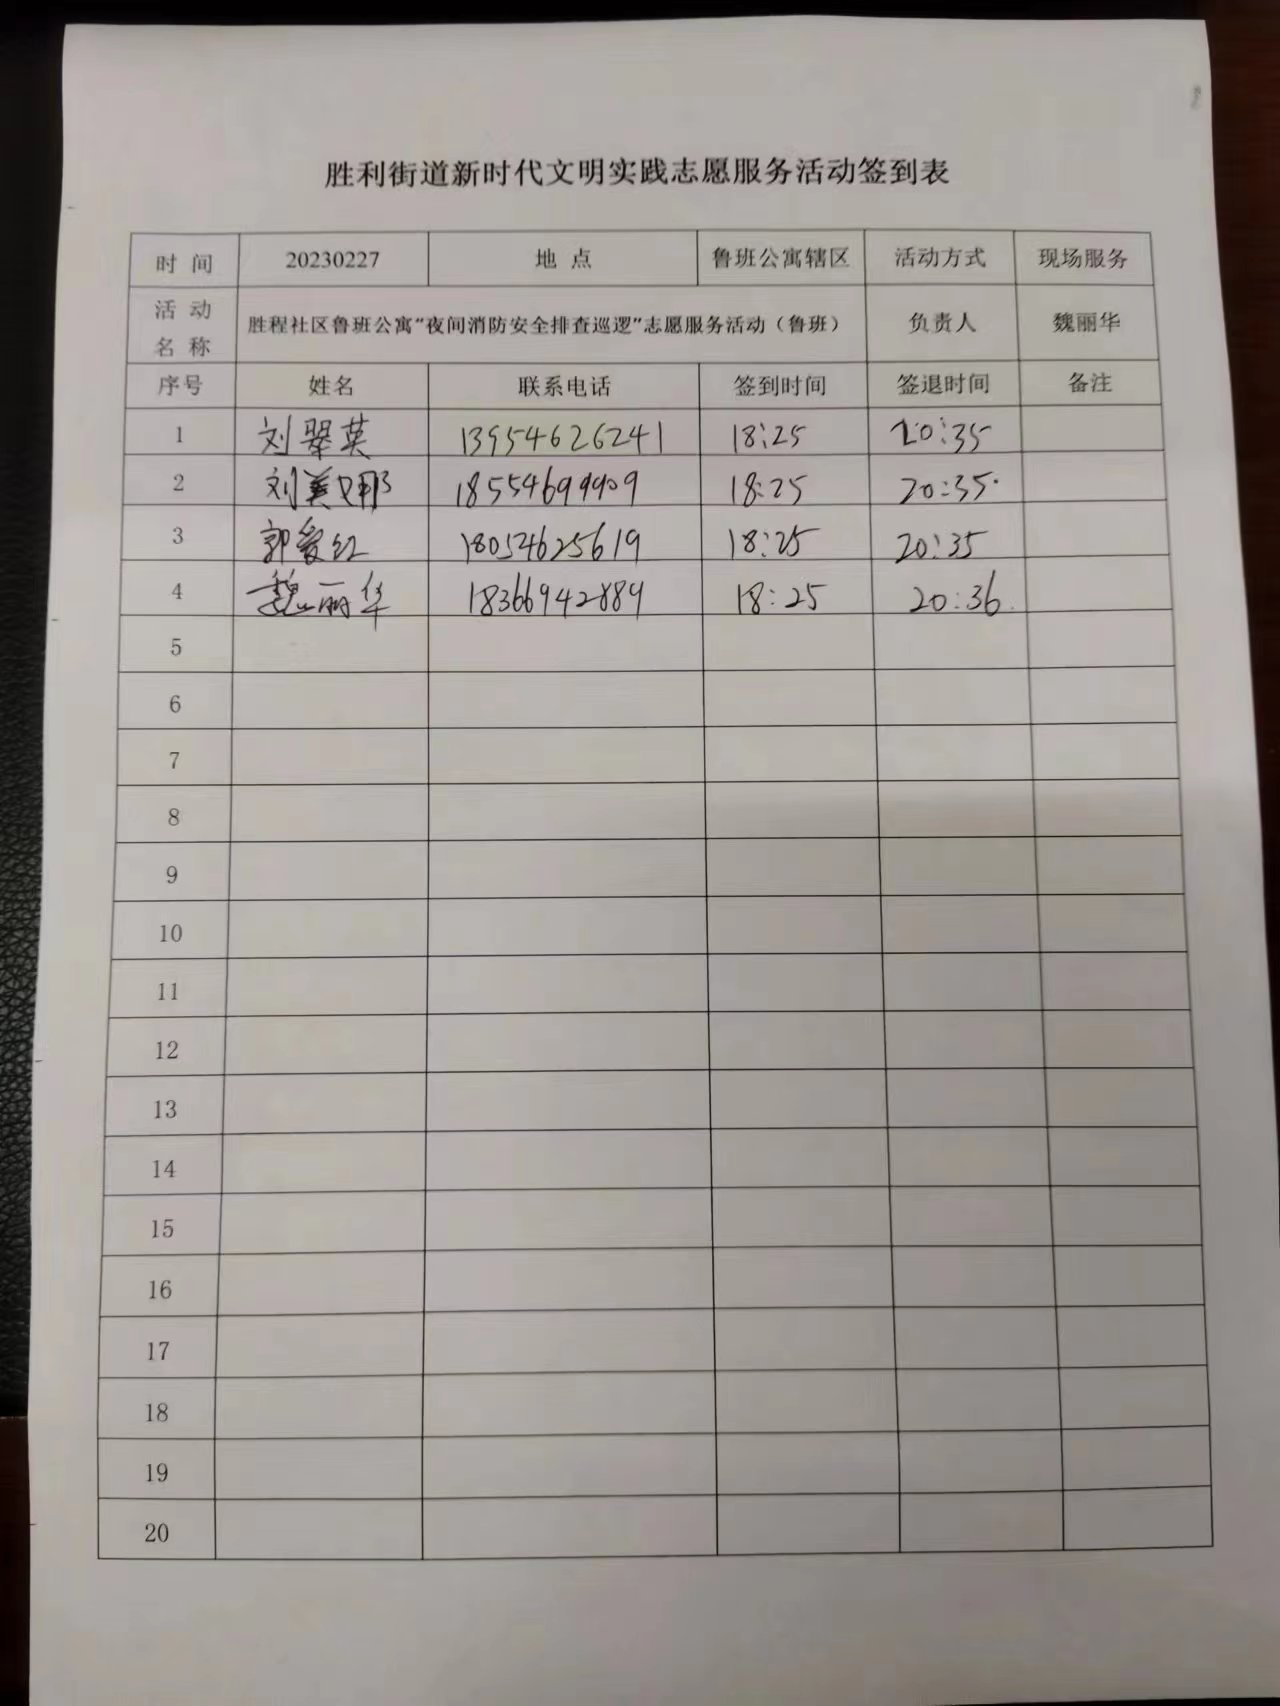 胜利街道新时代文明实践志愿服务活动签到表
时 间 20230227 地 点 鲁班公寓辖区 活动方式 现场服务
活 动
名 称 胜程社区鲁班公寓“夜间消防安全排查巡逻”志愿服务活动（鲁班） 负责人 魏丽华
序号 姓名 联系电话 签到时间 签退时间 备注
1 刘翠英 13954626241 18:25 20:35
2 刘美娜 18:25 20:35
3 郭爱红 18054625619 18:25 20:35
4 魏丽华 18366942889 18:25 20:36
5
6
7
8
9
10
11
12
13
14
15
16
17
18
19
20